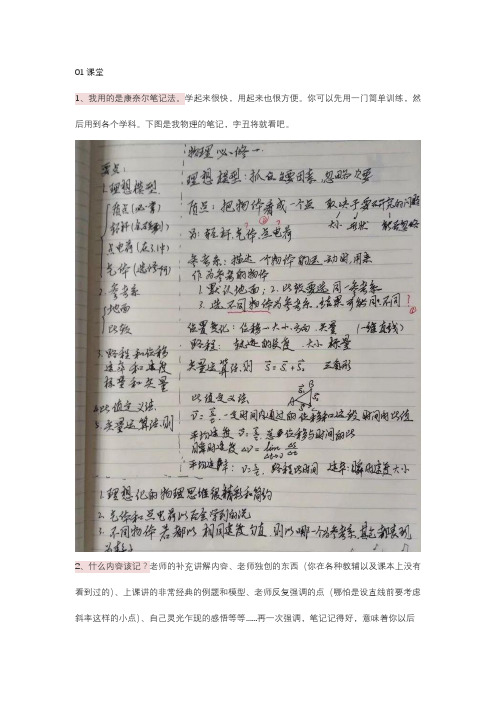 01 课堂
1、我用的是康奈尔笔记法，学起来很快，用起来也很方便。你可以先用一门简单训练，然
后用到各个学科。下图是我物理的笔记，字丑将就看吧。
物理必修一
要点：
1.理想模型
理想模型：抓住主要因素，忽略次要
质点（必一书）
质点：把物体看成一个点 取决于要研究的问题
大小 形状 能否忽略
另：轻杆、气体、点电荷
点电荷（在3-1中）
气体（选修
2.参考系
参考系：描述一个物体的运动时，用来
作为参考的物体
地面
1.默认地面；2.比较要选同一参考系
3.选不同物体为参考系，结果可能同、不同？
比较
位置变化：位移→大小、方向 矢量 （一维直线）
3.路程和位移
路程：轨迹的长度 大小 标量
速率和速度
标量和矢量
矢量运算法则 三角形
4.比值定义法
比值定义法
5.矢量运算法则
一定时间内通过的位移和这段时间的比值
平均速度 总位移与时间的比
瞬时速度
平均速率： 路程比时间 速率：瞬时速度大小
1.理想化的物理思维很精彩和简约
2.气体和点电荷以后会学到的说
3.不同物体若都以相同速度匀直，则以哪一个为参考系，其它都表现
2、什么内容该记？老师的补充讲解内容、老师独创的东西（你在各种教辅以及课本上没有
看到过的）、上课讲的非常经典的例题和模型、老师反复强调的点（哪怕是设直线前要考虑
斜率这样的小点）、自己灵光乍现的感悟等等……再一次强调，笔记记得好，意味着你以后